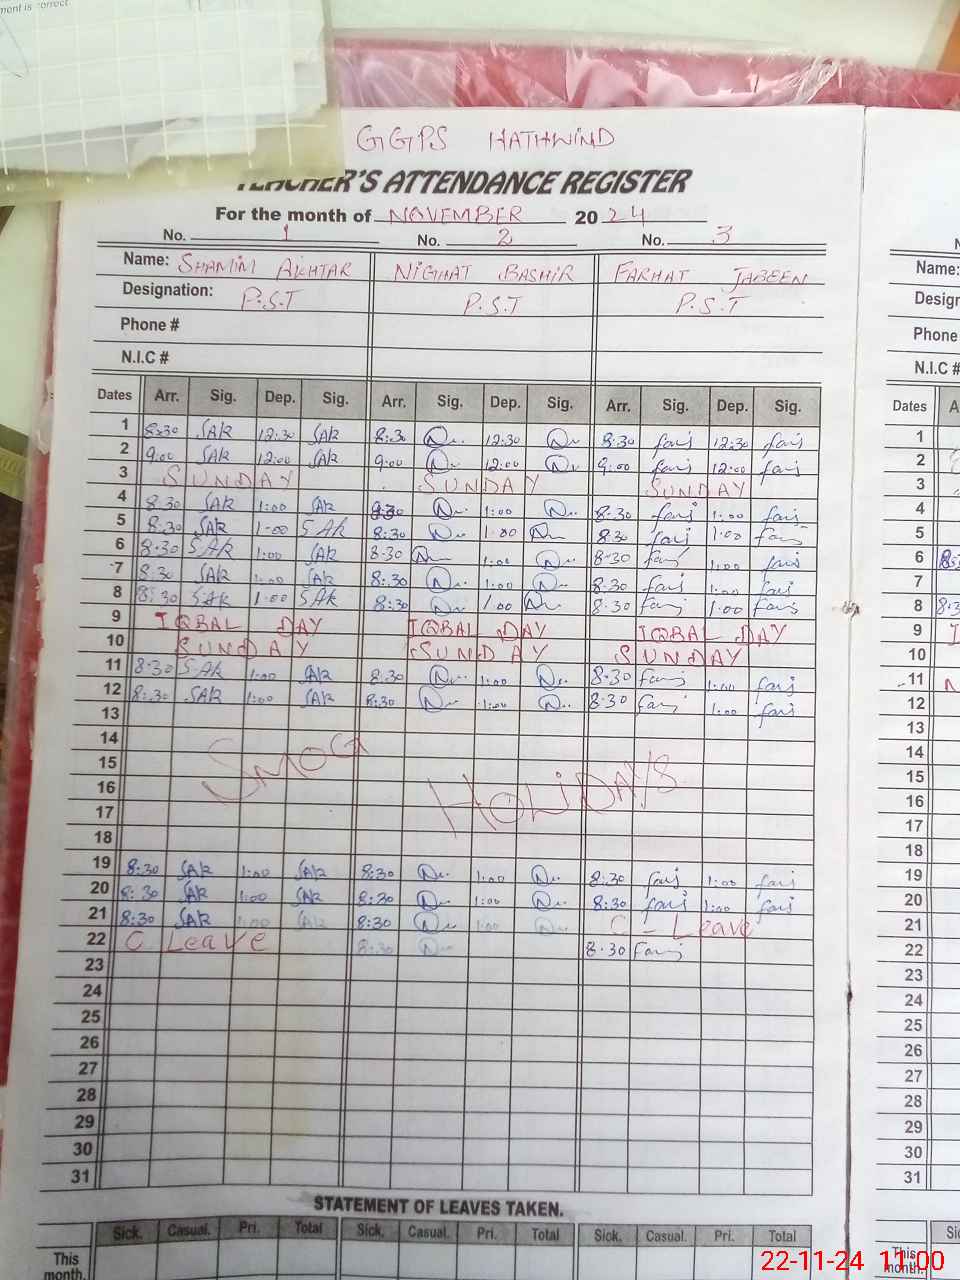 ment is correct.
GGPS HATHWIND
TEACHER'S ATTENDANCE REGISTER
For the month of NOVEMBER 2024
No. 1 No. 2 No. 3
Name: SHAMIM AKHTAR NIGHAT BASHIR FARHAT JABEEN Name:
Designation: P.S.T P.S.T P.S.T
Phone # Phone
N.I.C # N.I.C #
Dates Arr. Sig. Dep. Sig. Arr. Sig. Dep. Sig. Arr. Sig. Dep. Sig. Dates
1 8:30 SAK 12:30 SAK 8:30 12:30 8:30 12:30 1
2 9:00 SAK 12:00 SAK 9:00 12:00 9:00 12:00 2
3 SUNDAY SUNDAY SUNDAY 3
4 8:30 SAK 1:00 SAK 1:00 8:30 1:00 4
5 8:30 SAK 1:00 SAK 8:30 1:00 8:30 1:00 5
6 8:30 SAK 1:00 SAK 8:30 1:00 8:30 1:00 6
7 8:30 SAK 1:00 SAK 8:30 1:00 8:30 1:00 7
8 8:30 SAK 1:00 SAK 8:30 1:00 8:30 1:00 8
9 IQBAL DAY IQBAL DAY IQBAL DAY 9
10 SUNDAY SUNDAY SUNDAY 10
11 8:30 SAK 1:00 SAK 8:30 1:00 8:30 1:00 11
12 8:30 SAK 1:00 SAK 8:30 1:00 8:30 1:00 12
13 13
14 14
15 SMOG 15
16 HOLIDAYS 16
17 17
18 18
19 8:30 SAK 1:00 SAK 8:30 1:00 8:30 1:00 19
20 8:30 SAK 1:00 SAK 8:30 1:00 8:30 1:00 20
21 8:30 SAK 1:00 SAK 8:30 1:00 C - Leave 21
22 C Leave 8:30 8:30 22
23 23
24 24
25 25
26 26
27 27
28 28
29 29
30 30
31 31
STATEMENT OF LEAVES TAKEN.
Sick. Casual. Pri. Total Sick. Casual. Pri. Total Sick. Casual. Pri. Total
This month. This month.
22-11-24 11:00